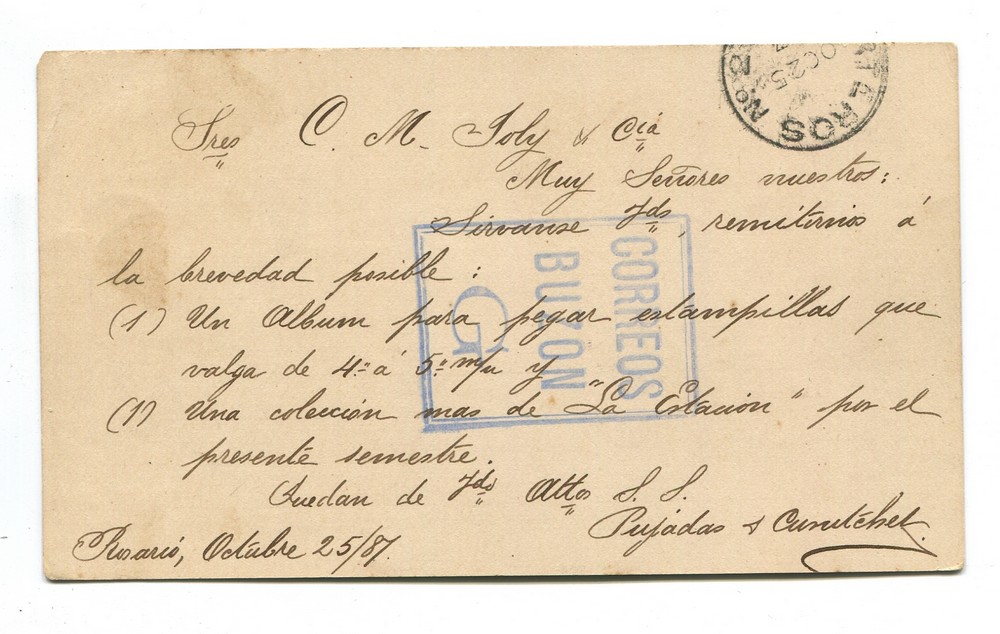 Sres C. M. Joly & Cía
Muy Señores nuestros:
Sirvanse Vds, remitirnos á
la brevedad posible:
(1) Un Album para pegar estampillas que
valga de 4= á 5= m/n y
(1) Una colección mas de "La Estacion" por el
presente semestre.
Quedan de Vds Attos S. S.
Pujadas & Curutchet.
Rosario, Octubre 25/87.
CORREOS
BUZON
G
OC25